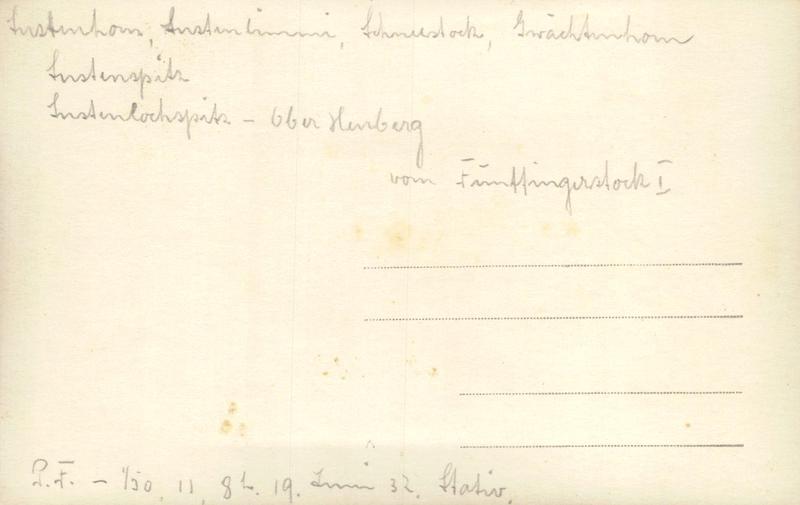 Sustenhorn, Sustenlimmi, Schneestock, Gwächtenhorn
Sustenspitz
Sustenlochspitz – Ober Heuberg
vom Fünffingerstock I
P.F. – 1/50, 11, 8h. 19. Juni 32. Stativ.